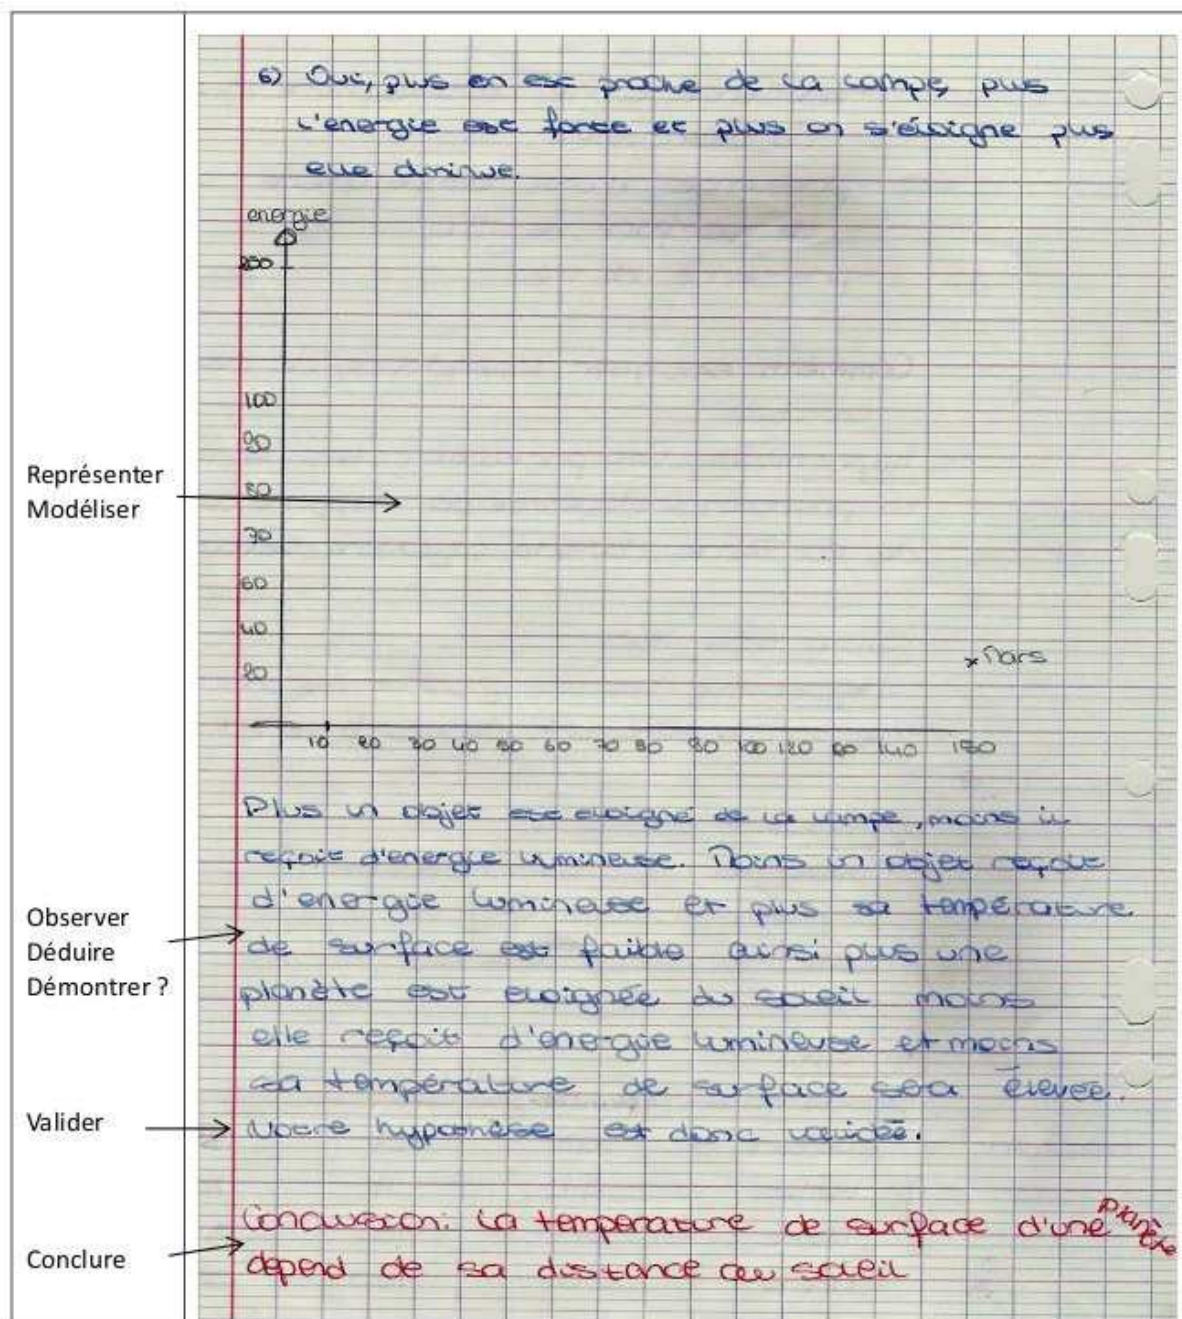 6) Oui, plus on est proche de la lampe, plus
l'énergie est forte et plus on s'éloigne plus
elle diminue.
energie
200
100
90
Représenter
Modéliser
80
70
60
40
20
Mars
10 20 30 40 50 60 70 80 90 100 120 140 150
Plus un objet est eloigné de la lampe, moins il
reçoit d'energie lumineuse. Moins un objet reçoit
d'energie lumineuse et plus sa température
de surface est faible ainsi plus une
planète est eloignée du soleil moins
elle reçoit d'énergie lumineuse et moins
sa température de surface sera élevée.
Notre hypothèse est donc validée.
Observer
Déduire
Démontrer ?
Valider
Conclusion: La temperature de surface d'une planète
depend de sa distance au soleil
Conclure